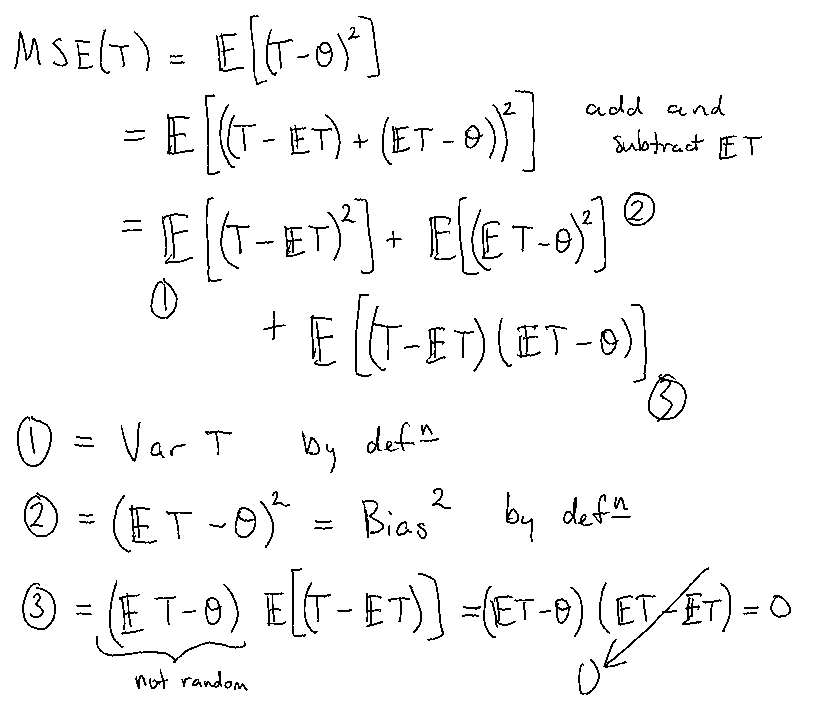 MSE(T) = 𝔼[(T-θ)²]
= 𝔼[((T - 𝔼T) + (𝔼T - θ))²] add and subtract 𝔼T
= 𝔼[(T - 𝔼T)²] ① + 𝔼[(𝔼T - θ)²] ②
+ 𝔼[(T - 𝔼T)(𝔼T - θ)] ③
① = Var T by defⁿ
② = (𝔼T - θ)² = Bias² by defⁿ
③ = (𝔼T - θ) 𝔼[(T - 𝔼T)] = (𝔼T - θ)(𝔼T - 𝔼T) = 0
not random 0